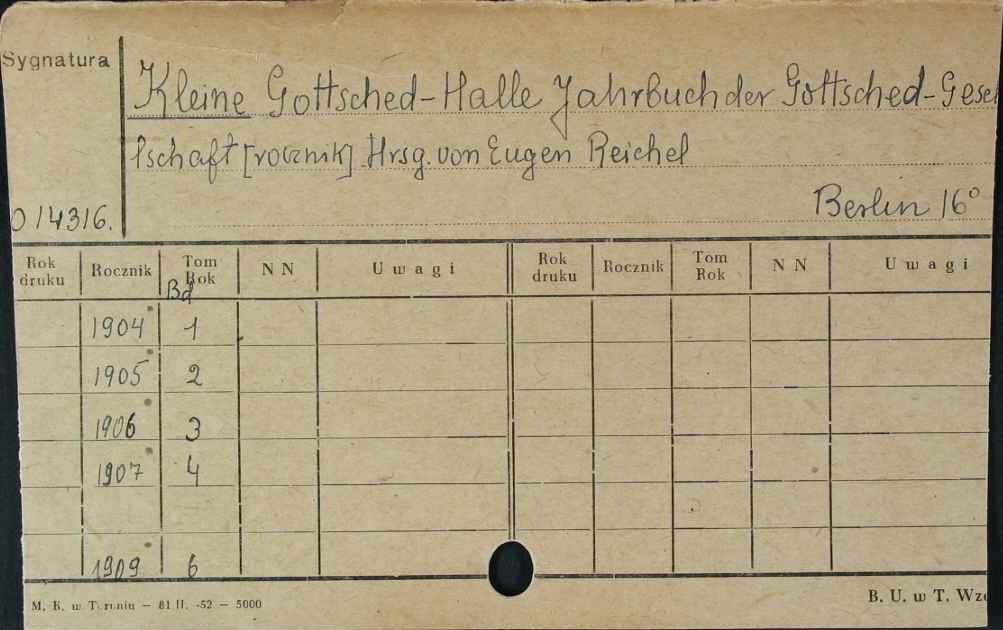 Sygnatura
Kleine Gottsched-Halle Jahrbuch der Gottsched-Gesel
lschaft [rocznik] Hrsg. von Eugen Reichel
Berlin 16°
014316.
Rok druku Rocznik Tom Rok NN Uwagi Rok druku Rocznik Tom Rok NN Uwagi
Bd
1904 1
1905 2
1906 3
1907 4
1909 6
M. K. w Toruniu — 81 II. -52 — 5000
B. U. w T. Wzo